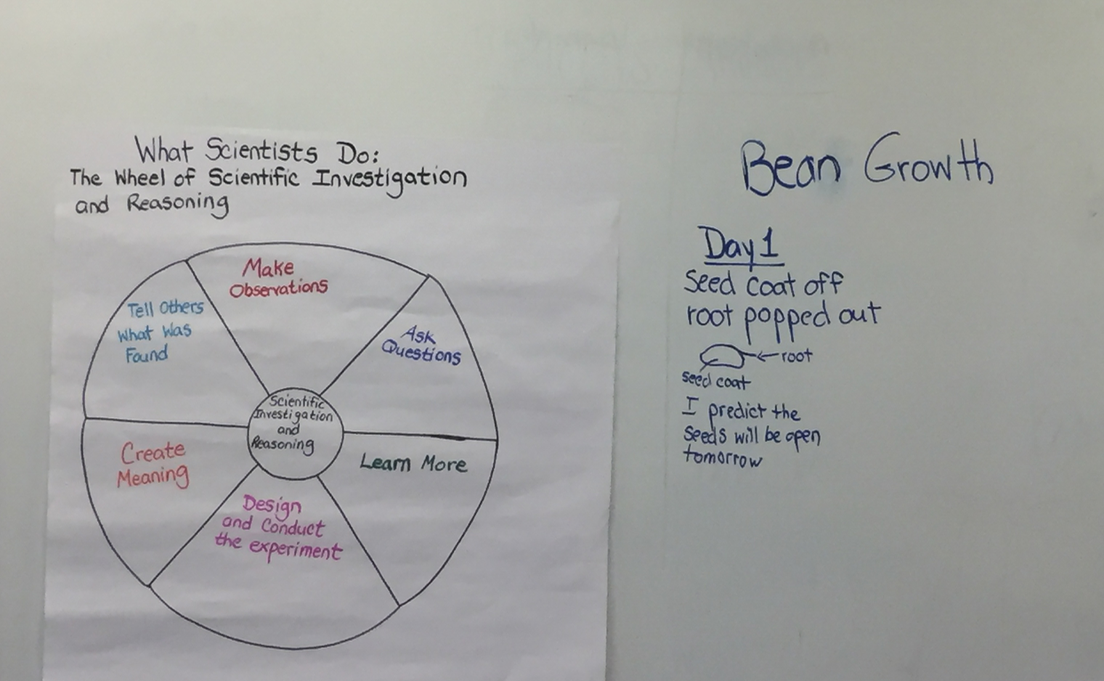 What Scientists Do:
The Wheel of Scientific Investigation
and Reasoning
Make
Observations
Ask
Questions
Learn More
Design
and Conduct
the experiment
Create
Meaning
Tell Others
What Was
Found
Scientific
Investigation
and
Reasoning
Bean Growth
Day 1
Seed coat off
root popped out
root
seed coat
I predict the
Seeds will be open
tomorrow